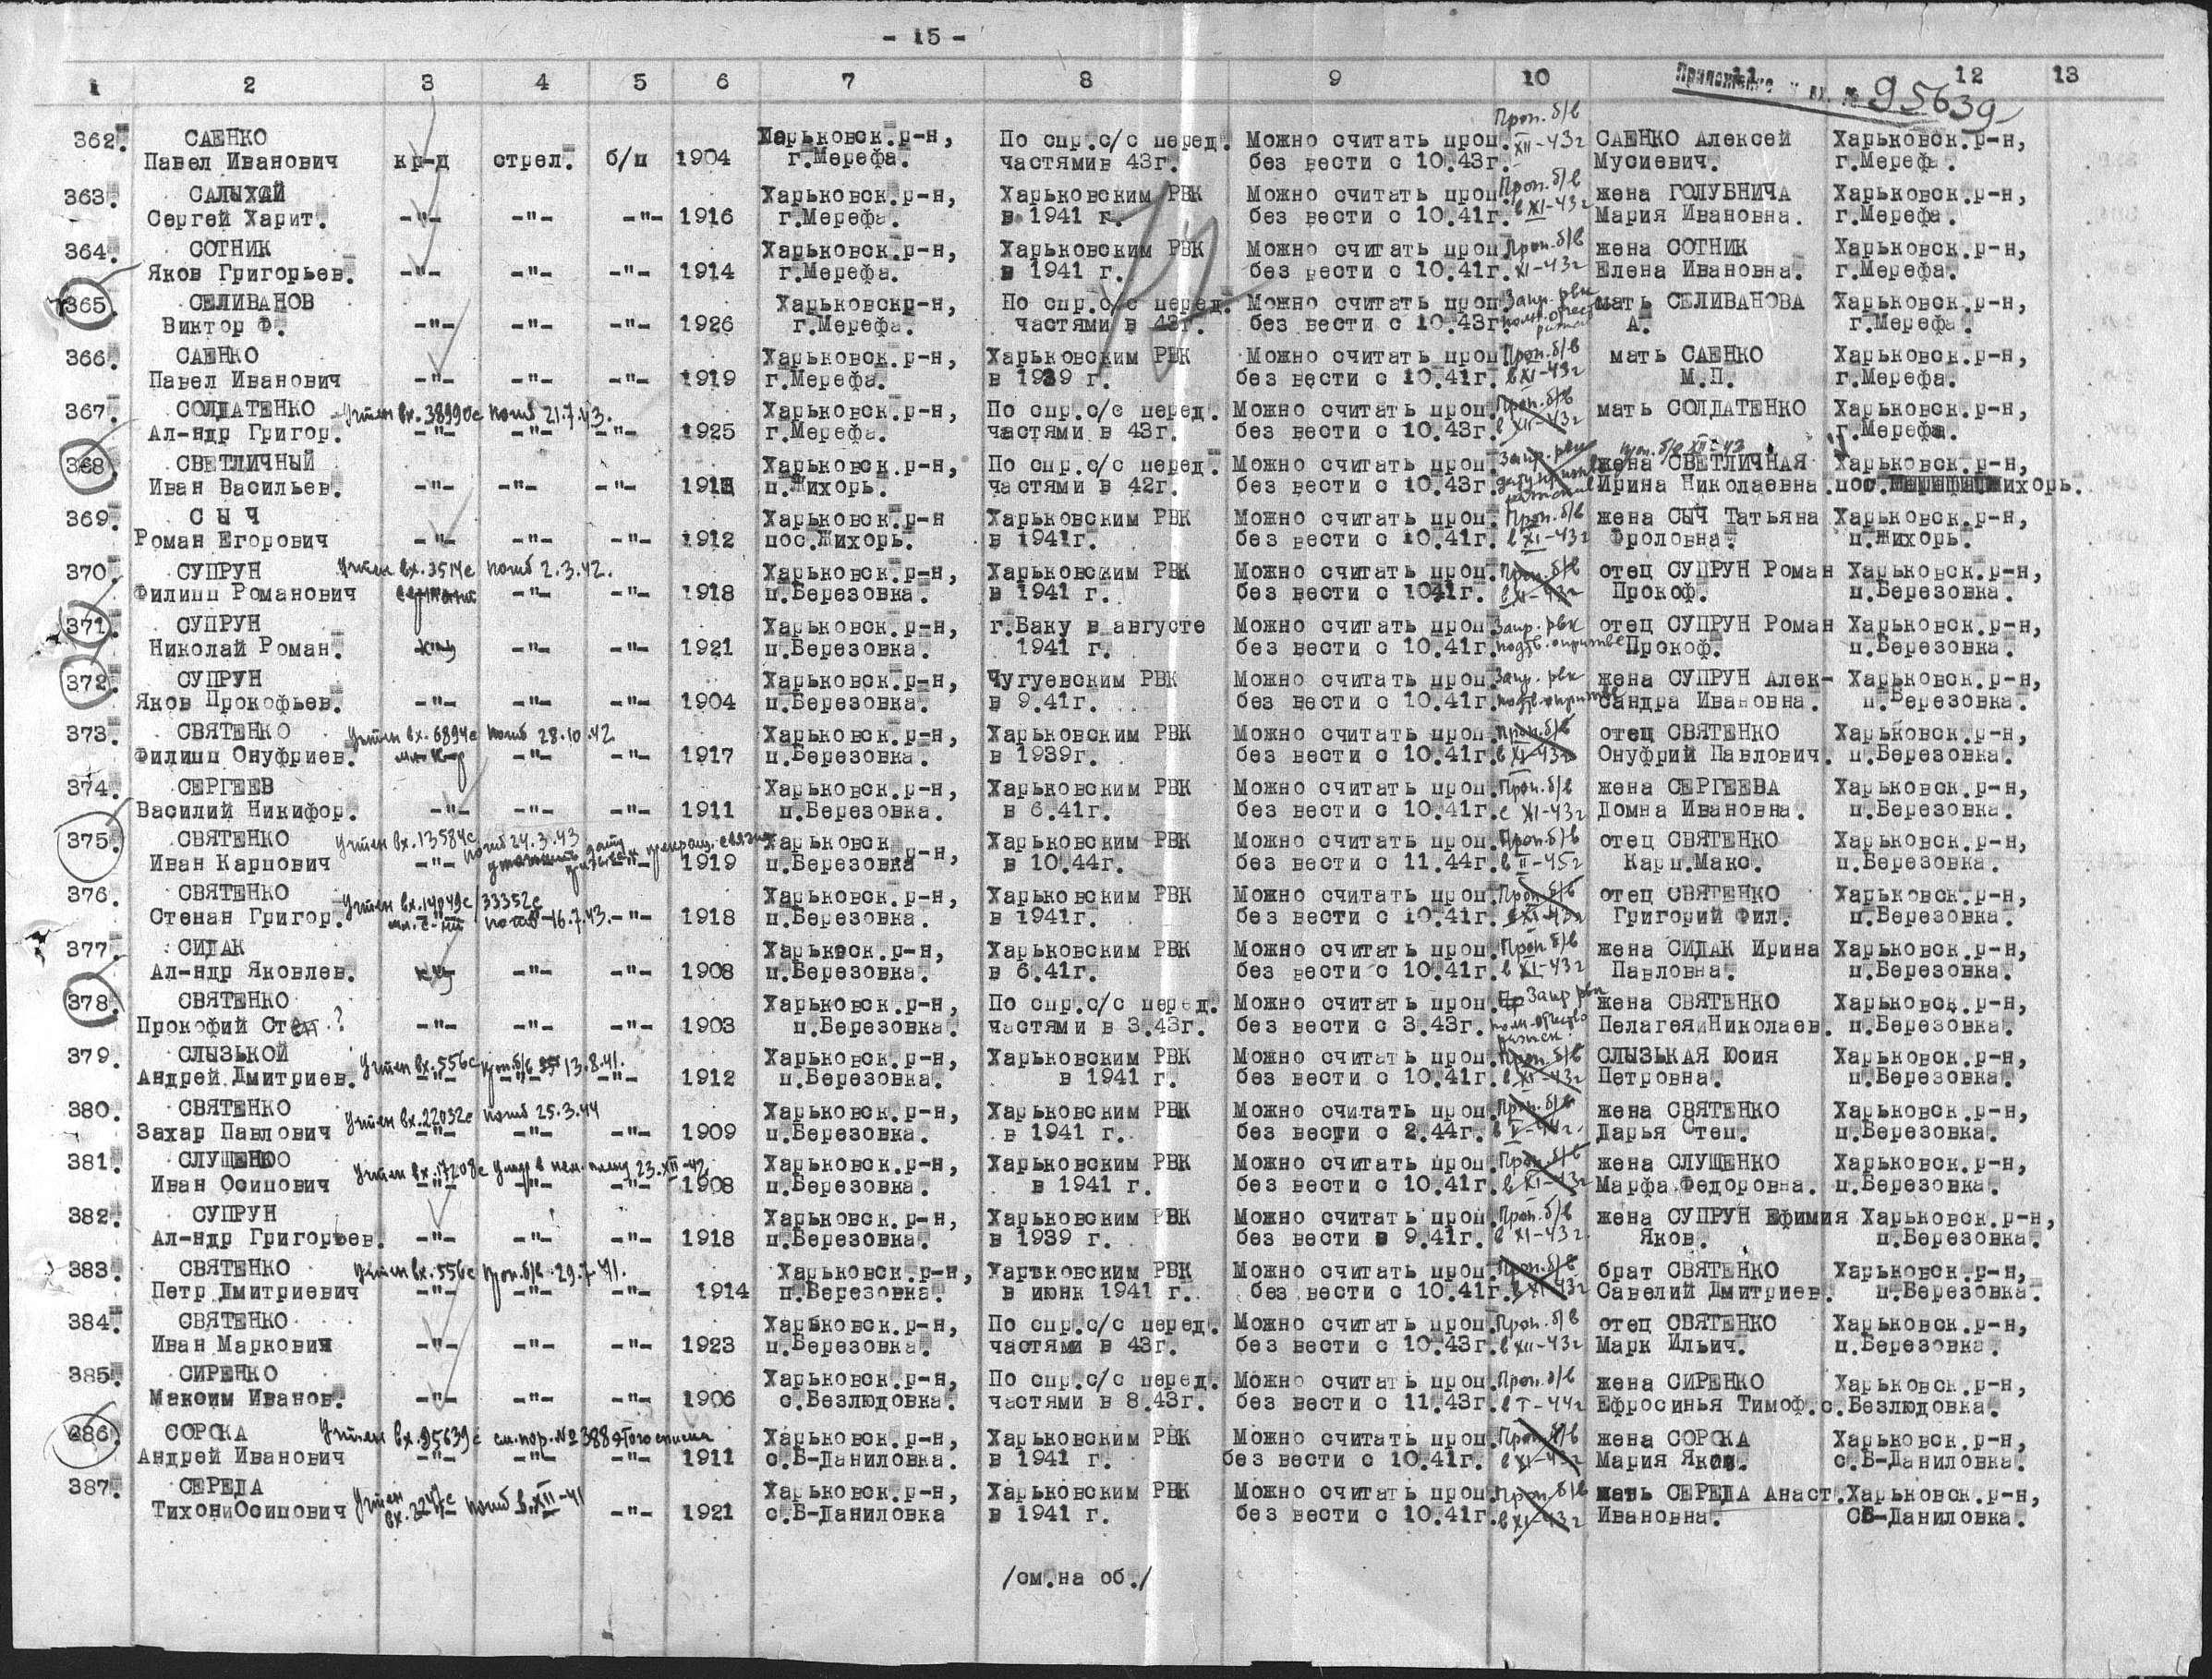 - 15 -
1 2 3 4 5 6 7 8 9 10 11 12 13
Приложение вх. № 95639
Проп. б/в
362. САЕНКО Харьковск.р-н, По спр.с/с перед. Можно считать проп. XII-43г САЕНКО Алексей Харьковск.р-н,
Павел Иванович кр-ц стрел. б/п 1904 г.Мерефа. частямив 43г. без вести с 10.43г. Мусиевич. г.Мерефа.
363. САЛЫХАЙ Харьковск.р-н, Харьковским РВК Можно считать проп. Проп. б/в жена ГОЛУБНИЧА Харьковск.р-н,
Сергей Харит. -"- -"- -"- 1916 г.Мерефа. в 1941 г. без вести с 10.41г. в XI-43г Мария Ивановна. г.Мерефа.
364. СОТНИК Харьковск.р-н, Харьковским РВК Можно считать проп. Проп. б/в жена СОТНИК Харьковск.р-н,
Яков Григорьев. -"- -"- -"- 1914 г.Мерефа. в 1941 г. без вести с 10.41г. XI-43г Елена Ивановна. г.Мерефа.
365. СЕЛИВАНОВ Харьковскр-н, По спр.с/с перед. Можно считать проп. Запр. рвк мать СЕЛИВАНОВА Харьковск.р-н,
Виктор Ф. -"- -"- -"- 1926 г.Мерефа. частями в 43г. без вести с 10.43г. А. г.Мерефа.
366. САЕНКО Харьковск.р-н, Харьковским РВК Можно считать проп. Проп. б/в мать САЕНКО Харьковск.р-н,
Павел Иванович -"- -"- -"- 1919 г.Мерефа. в 1939 г. без вести с 10.41г. в XI-43г М.П. г.Мерефа.
367. СОЛДАТЕНКО Учтен вх. 38990с погиб 21.7.43. Харьковск.р-н, По спр.с/с перед. Можно считать проп. Проп. б/в мать СОЛДАТЕНКО Харьковск.р-н,
Ал-ндр Григор. -"- -"- -"- 1925 г.Мерефа. частями в 43г. без вести с 10.43г. в XII-43г г.Мерефа.
проп. б/в XII-43
368. СВЕТЛИЧНЫЙ Харьковск.р-н, По спр.с/с перед. Можно считать проп. Запр. рвк жена СВЕТЛИЧНАЯ Харьковск.р-н,
Иван Васильев. -"- -"- -"- п.Жихорь. частями в 42г. без вести с 10.43г. Ирина Николаевна. пос. Жихорь.
369. С Ы Ч Харьковск.р-н Харьковским РВК Можно считать проп. Проп. б/в жена СЫЧ Татьяна Харьковск.р-н,
Роман Егорович -"- -"- -"- 1912 пос.Жихорь. в 1941г. без вести с 10.41г. в XI-43г Фроловна. п.Жихорь.
370. СУПРУН Учтен вх. 3514с погиб 2.3.42. Харьковск.р-н, Харьковским РВК Можно считать проп. Проп. б/в отец СУПРУН Роман Харьковск.р-н,
Филипп Романович сержант -"- -"- 1918 п.Березовка. в 1941 г. без вести с 1041г. в XI-43г Прокоф. п.Березовка.
371. СУПРУН Харьковск.р-н, г.Баку в августе Можно считать проп. Запр. рвк отец СУПРУН Роман Харьковск.р-н,
Николай Роман. -"- -"- 1921 п.Березовка. 1941 г. без вести с 10.41г. Прокоф. п.Березовка.
372. СУПРУН Харьковск.р-н, Чугуевским РВК Можно считать проп. Запр. рвк жена СУПРУН Алек- Харьковск.р-н,
Яков Прокофьев. -"- -"- -"- 1904 п.Березовка. в 9.41г. без вести с 10.41г. сандра Ивановна. п.Березовка.
373. СВЯТЕНКО Учтен вх. 6894с погиб 28.10.42 Харьковск.р-н, Харьковским РВК Можно считать проп. Проп. б/в отец СВЯТЕНКО Харьковск.р-н,
Филипп Онуфриев. мл. к-р -"- -"- 1917 п.Березовка. в 1939г. без вести с 10.41г. в XI-43г Онуфрий Павлович. п.Березовка.
374. СЕРГЕЕВ Харьковск.р-н, Харьковским РВК Можно считать проп. Проп. б/в жена СЕРГЕЕВА Харьковск.р-н,
Василий Никифор. -"- -"- -"- 1911 п.Березовка. в 6.41г. без вести с 10.41г. с XI-43г Домна Ивановна. п.Березовка.
375. СВЯТЕНКО Учтен вх. 13584с погиб 24.3.43 Харьковск р-н, Харьковским РВК Можно считать проп. Проп. б/в отец СВЯТЕНКО Харьковск.р-н,
Иван Карпович -"- уточнить дату прекращ. связи -"- 1919 п.Березовка в 10.44г. без вести с 11.44г. в II-45г Карп.Макс. п.Березовка.
376. СВЯТЕНКО Учтен вх. 14049с/33352с Харьковск.р-н, Харьковским РВК Можно считать проп. Проп. б/в отец СВЯТЕНКО Харьковск.р-н,
Степан Григор. мл. с-нт погиб 16.7.43. -"- 1918 п.Березовка. в 1941г. без вести с 10.41г. в XI-43г Григорий Фил. п.Березовка.
377. СИДАК Харьквск.р-н, Харьковским РВК Можно считать проп. Проп. б/в жена СИДАК Ирина Харьковск.р-н,
Ал-ндр Яковлев. -"- -"- 1908 п.Березовка. в 6.41г. без вести с 10.41г. в XI-43г Павловна. п.Березовка.
378. СВЯТЕНКО Харьковск.р-н, По спр.с/с перед. Можно считать проп. Запр рвк жена СВЯТЕНКО Харьковск.р-н,
Прокофий Степ.? -"- -"- -"- 1903 п.Березовка. частями в 3.43г. без вести с 3.43г. полн. отчество розыск ПелагеяиНиколаев. п.Березовка.
379. СЛЫЗЬКОЙ Учтен вх. 556с проп. б/в 13.8.41. Харьковск.р-н, Харьковским РВК Можно считать проп. Проп. б/в СЛЫЗЬКАЯ Юсия Харьковск.р-н,
Андрей Дмитриев. -"- -"- -"- 1912 п.Березовка. в 1941 г. без вести с 10.41г. в XI-43г Петровна. п.Березовка.
380. СВЯТЕНКО Учтен вх. 22032с погиб 25.3.44 Харьковск.р-н, Харьковским РВК Можно считать проп. Проп. б/в жена СВЯТЕНКО Харьковск.р-н,
Захар Павлович -"- -"- -"- 1909 п.Березовка. в 1941 г. без вести с 2.44г. Дарья Степ. п.Березовка.
381. СЛУЩЕНКО Учтен вх. 17208с умер в нем. плену 23.XII-42 Харьковск.р-н, Харьковским РВК Можно считать проп. Проп. б/в жена СЛУЩЕНКО Харьковск.р-н,
Иван Осипович -"- -"- -"- 1908 п.Березовка. в 1941 г. без вести с 10.41г. в XI-43г Марфа Федоровна. п.Березовка.
382. СУПРУН Харьковск.р-н, Харьковским РВК Можно считать проп. Проп. б/в жена СУПРУН Ефимия Харьковск.р-н,
Ал-ндр Григорьев. -"- -"- -"- 1918 п.Березовка. в 1939 г. без вести в 9.41г. в XI-43г Яков. п.Березовка.
383. СВЯТЕНКО Учтен вх. 556с проп. б/в 29.7.41. Харьковск.р-н, Харьковским РВК Можно считать проп. Проп. б/в брат СВЯТЕНКО Харьковск.р-н,
Петр Дмитриевич -"- -"- -"- 1914 п.Березовка. в июнк 1941 г. без вести с 10.41г. в XI-43г Савелий Дмитриев. п.Березовка.
384. СВЯТЕНКО Харьковск.р-н, По спр.с/с перед. Можно считать проп. Проп. б/в отец СВЯТЕНКО Харьковск.р-н,
Иван Маркович -"- -"- -"- 1923 п.Березовка. частями в 43г. без вести с 10.43г. в XII-43г Марк Ильич. п.Березовка.
385. СИРЕНКО Харьковск.р-н, По спр.с/с перед. Можно считать проп. Проп. б/в жена СИРЕНКО Харьковск.р-н,
Максим Иванов. -"- -"- -"- 1906 с.Безлюдовка. частями в 8.43г. без вести с 11.43г. в I-44г Ефросинья Тимоф. с.Безлюдовка.
386. СОРОКА Учтен вх. 95639с см. пор. № 388 этого списка Харьковск.р-н, Харьковским РВК Можно считать проп. Проп. б/в жена СОРОКА Харьковск.р-н,
Андрей Иванович -"- -"- -"- 1911 с.Б-Даниловка. в 1941 г. без вести с 10.41г. в XI-43г Мария Яков. с.Б-Даниловка.
387. СЕРЕДА Учтен Харьковск.р-н, Харьковским РВК Можно считать проп. Проп. б/в мать СЕРЕДА Анаст. Харьковск.р-н,
ТихониОсипович вх. погиб в XII-41 -"- 1921 с.Б-Даниловка в 1941 г. без вести с 10.41г. в XI-43г Ивановна. СБ-Даниловка.
/см.на об./